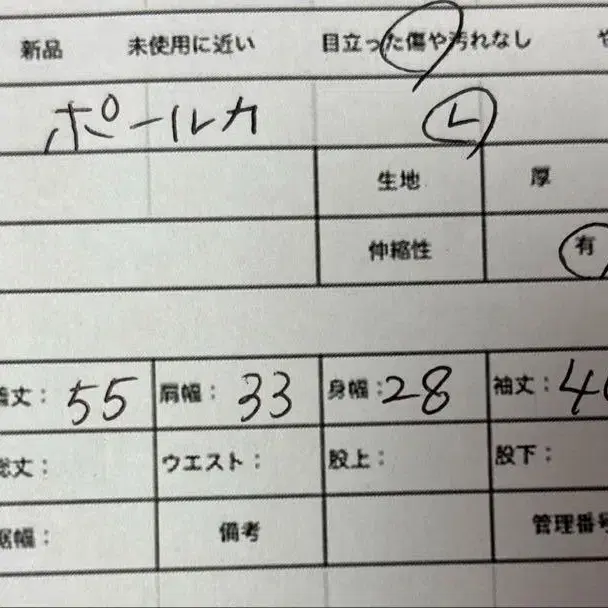 新品 未使用に近い 目立った傷や汚れなし
ポールカ L
生地 厚
伸縮性 有
丈： 55 肩幅： 33 身幅： 28 袖丈： 4
総丈： ウエスト： 股上： 股下：
裾幅： 備考 管理番号